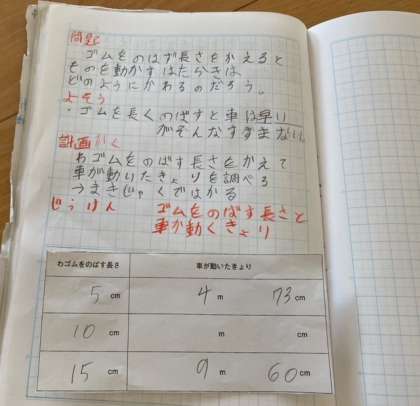 問題
ゴムをのばす長さをかえると
ものを動かすはたらきは
どのようにかわるのだろう。
よそう
・ゴムを長くのばすと車は早い
がそんなすすまない
計画
わゴムをのばす長さをかえて
車が動いたきょりを調べる
→まきじゃくではかる
じっけん ゴムをのばす長さと
車が動くきょり
わゴムをのばす長さ 車が動いたきょり
5 cm 4 m 73 cm
10 cm m cm
15 cm 9 m 60 cm